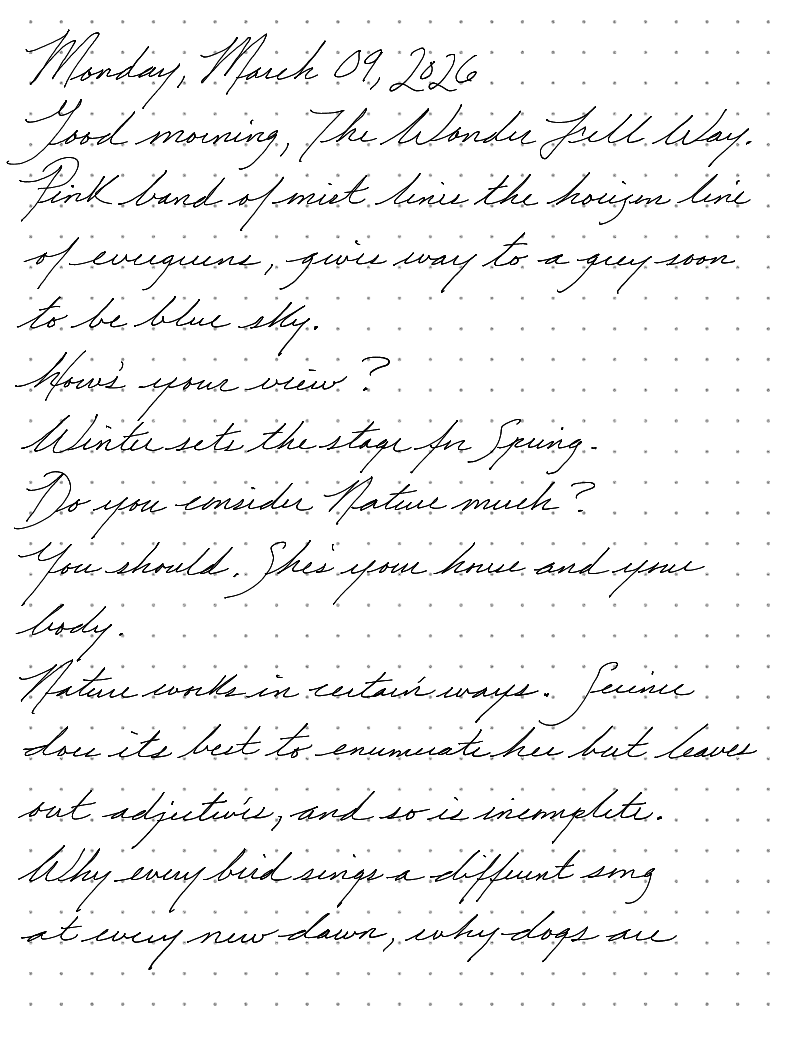 Monday, March 09, 2026
Good morning, The Wonder Full Way.
Pink band of mist lines the horizon line
of evergreens, gives way to a grey soon
to be blue sky.
How's your view?
Winter sets the stage for Spring.
Do you consider Nature much?
You should. She's your house and your
body.
Nature works in certain ways. Science
does its best to enumerate her but leaves
out adjectives, and so is incomplete.
Why every bird sings a different song
at every new dawn, why dogs are